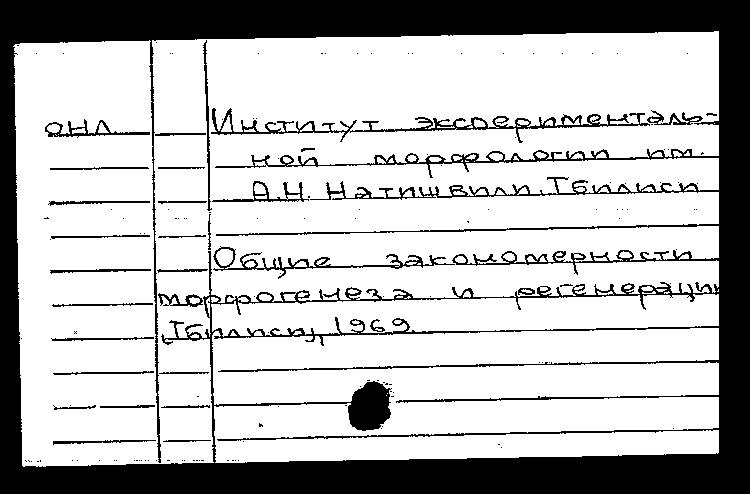 ОНЛ Институт эксперименталь-
ной морфологии им.
А.Н. Натишвили. Тбилиси
Общие закономерности
морфогенеза и регенерации
, Тбилиси, 1969